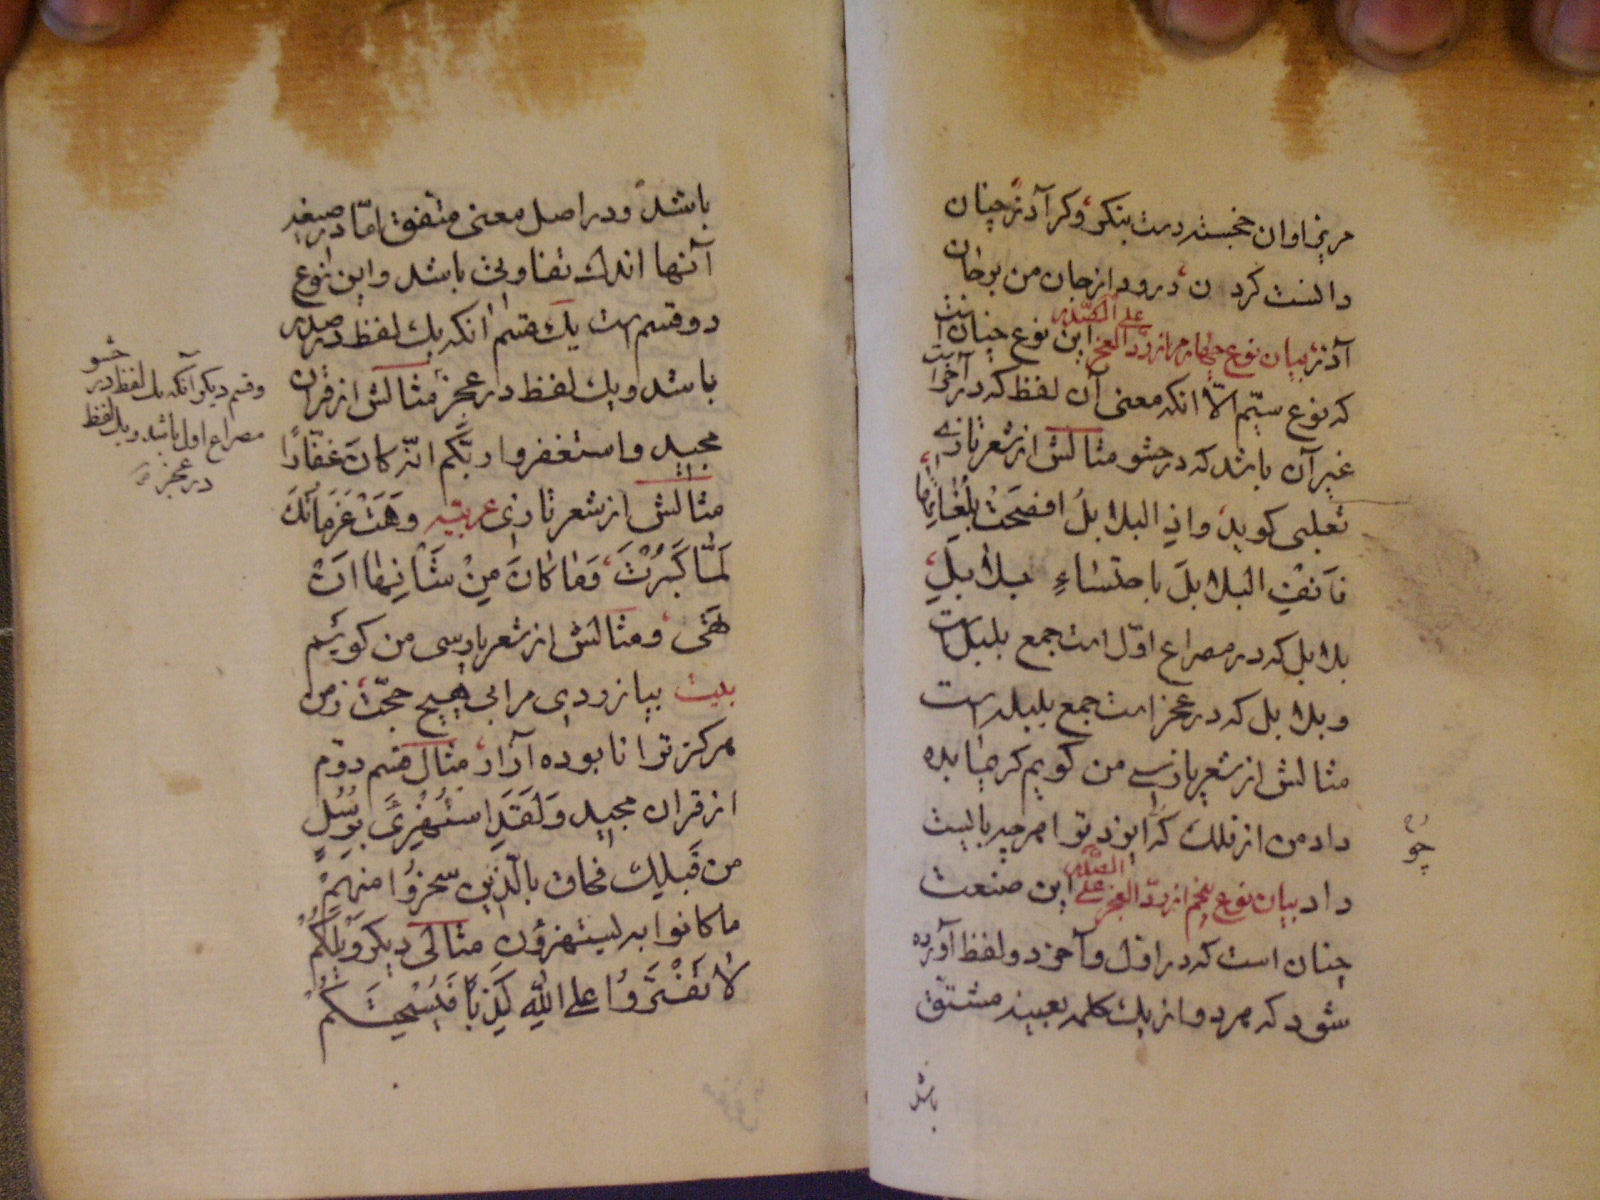 مرنج اوان خجسته دست بنكر و كر آذر چنان
دانست كرد ن درود از جان من بر جان
آذر بيان نوع چهارم از ردّ العجز على الصّدر اين نوع چنان است
كه نوع سيّم الّا انكه معنى آن لفظ كه در آخر است
غير آن باشد كه در حشو مثالش از شعر تازى
ثعلبى كويد واذ البلابلُ افصحتْ بلُغاتِها
فانفِ البلابلَ باحتساءِ بلابلِ
بلابل كه در مصراع اوّل است جمع بلبل است
وبلابل كه در عجز است جمع بلبله است
مثالش از شعر پارسى من كويم كر چه
داد من از فلك كه ايزد تو هر چه بايست
داد بيان نوع پنجم از ردّ العجز على الصّدر اين صنعت
چنان است كه در اوّل وآخر دو لفظ آورده
شود كه هر دو از يك كلمه بعينه مشتق
چو
باشد
باشد ودر اصل معنى متفق امّا در صيغه
آنها اندك تفاوتى باشد واين نوع
دو قسم است يك قسم انكه يك لفظ در صدر
باشد ويك لفظ در عجز مثالش از قران
مجيد واستغفروا ربّكم انّه كانَ غفّارًا
مثالش از شعر تازى عربيّه وهَتْ عَزَماتُكَ
لَمّا كَبُرْتَ وَما كانَ مِنْ شَأْنِها انْ
تَهى ومثالش از شعر پارسى من كويم
بيت بيازردى مرا بى هيچ حجّت زمن
هركز ترا نابوده آزار مثال قسم دوّم
از قران مجيد وَلَقَدِ اسْتُهْزِئَ بِرُسُلٍ
من قَبلِك فحاق بالّذين سخِرُوا منهمْ
ما كانوا به يستهزؤن مثالى ديكر وَيْلَكُمْ
لا تَفْتَرُوا على اللّهِ كَذِبًا فَيُسْحِتَكُمْ
وقسم ديكر آنكه يك لفظ در حشو
مصراع اول باشد ويك لفظ
در عجز